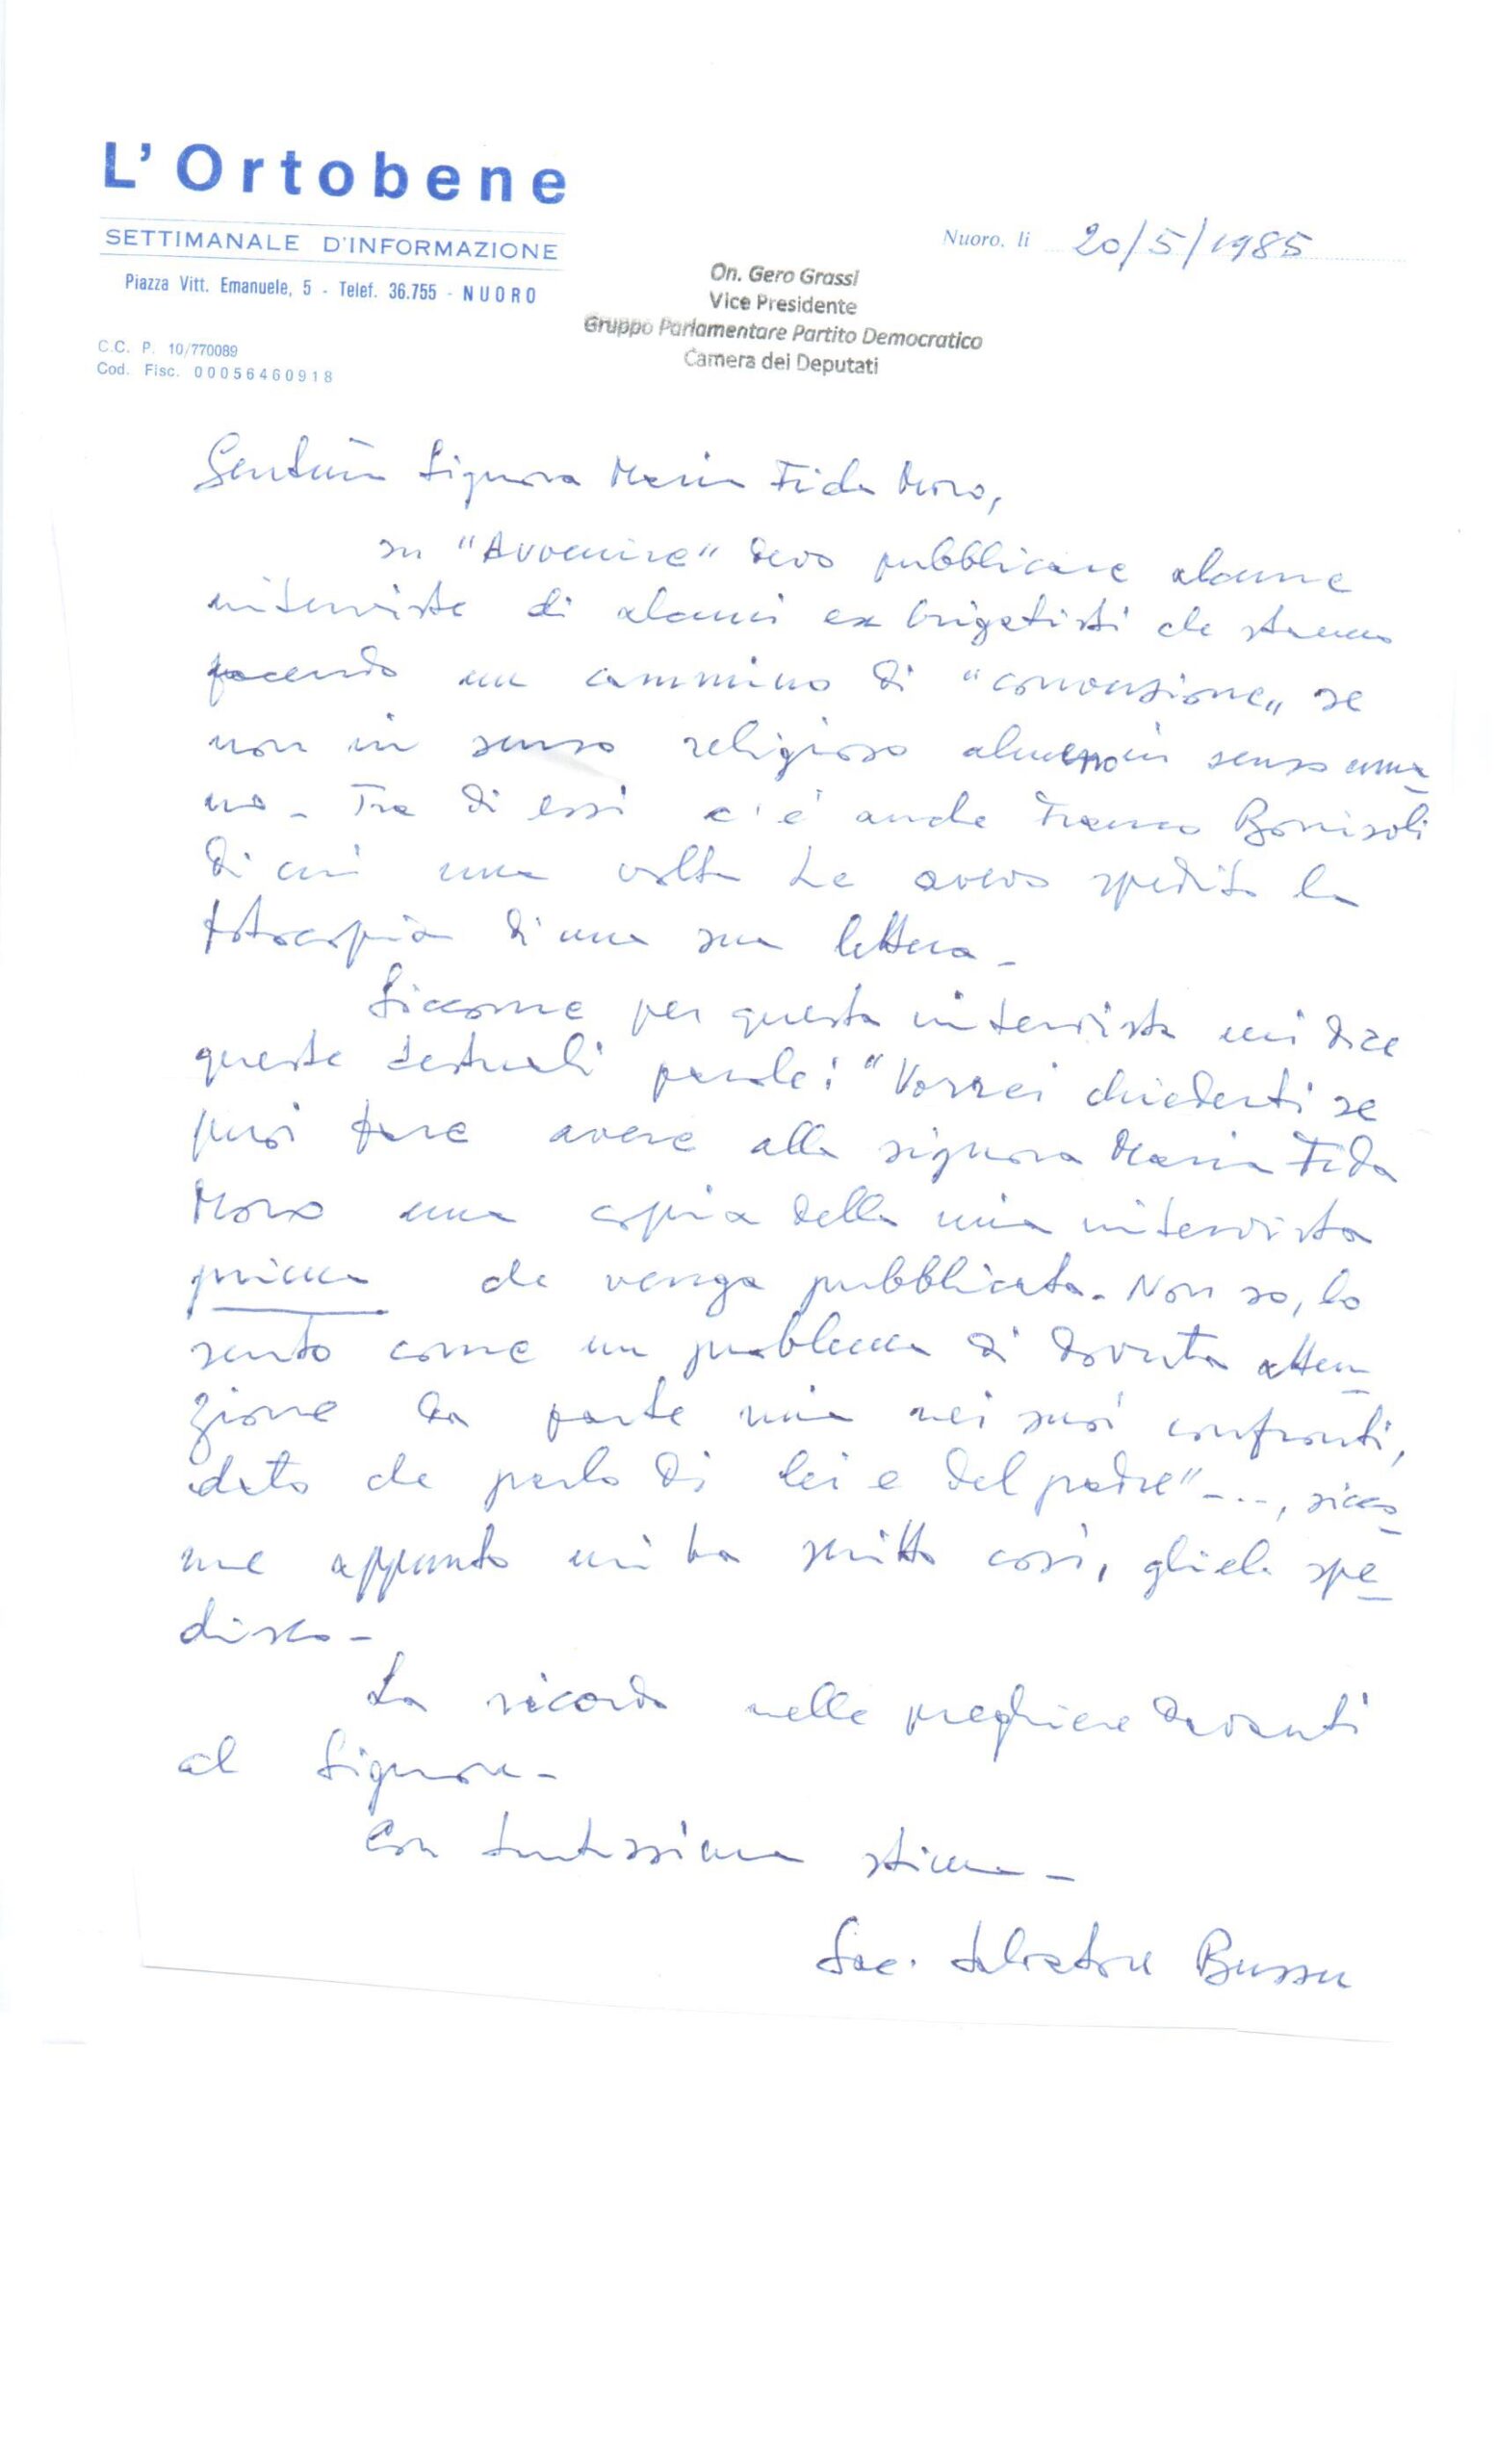 L'Ortobene
SETTIMANALE D'INFORMAZIONE
Piazza Vitt. Emanuele, 5 - Telef. 36.755 - NUORO
C.C. P. 10/770089
Cod. Fisc. 00056460918
Nuoro, li 20/5/1985
On. Gero Grassi
Vice Presidente
Gruppo Parlamentare Partito Democratico
Camera dei Deputati
Signora Maria Fida Moro,
su "Avvenire" devo pubblicare alcune
interviste di alcuni ex brigatisti che stanno
facendo un cammino di "conversione" se
non in senso religioso almeno in senso uma-
no - Tra di essi c'è anche Franco Bonisoli
di cui una volta Le avevo spedito la
fotocopia di una sua lettera -
Siccome per questa intervista mi dice
queste testuali parole: "Vorrei chiederti se
puoi fare avere alla signora Maria Fida
Moro una copia della mia intervista
prima che venga pubblicata. Non so, lo
sento come un problema di dovuta atten-
zione da parte mia nei suoi confronti,
dato che parlo di lei e del padre" -..., sicco-
me appunto mi ha scritto così, gliela spe-
disco -
La ricordo nelle preghiere davanti
al Signore -
Con tantissima stima -
Sac. Salvatore Bussu